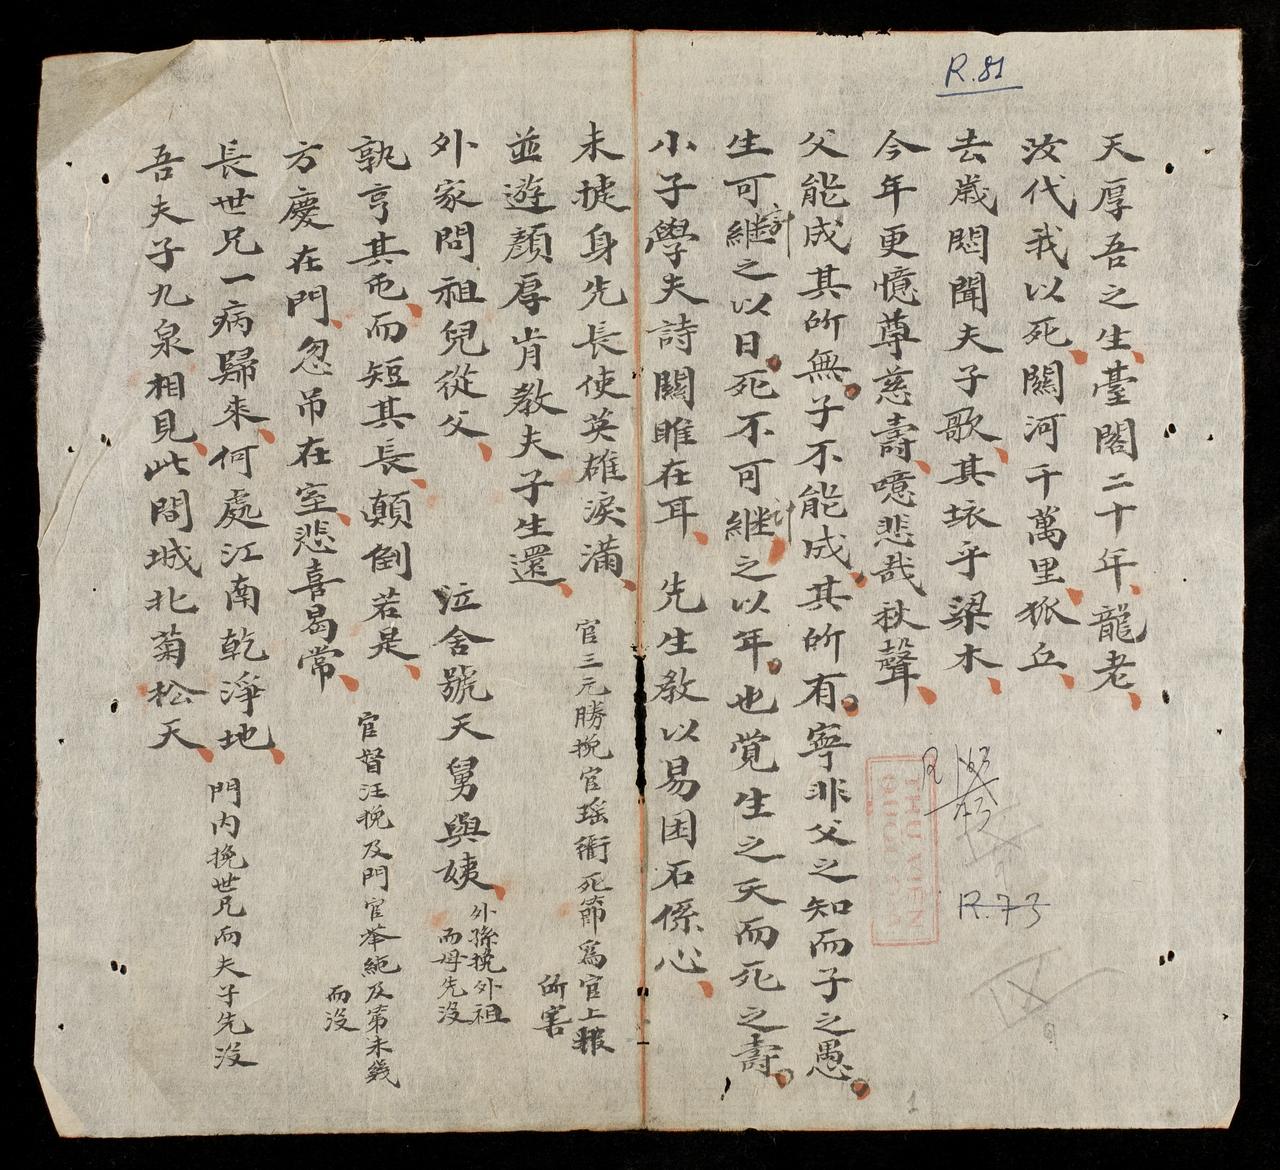 R.81
天厚吾之生臺閣二十年龍老
汝代我以死關河千萬里狐丘
去歲悶聞夫子歌其壞乎梁木
今年更憶尊慈壽噫悲哉秋聲
父能成其所無子不能成其所有寧非父之知而子之愚
生可継計之以日死不可継計之以年也覚生之夭而死之壽
小子學夫詩關雎在耳 先生教以易困石係心
未㨿身先長使英雄淚滿 官三元勝挽官瑶衢死節爲官上報所害
並遊顏厚肯教夫子生還
外家問祖兒從父 泣舍號天舅與姨 外孫挽外祖而母先沒
孰亨其屯而短其長顛倒若是 官督汪挽及門官
方慶在門忽吊在室悲喜曷常 及第未幾而沒
長世兄一病歸來何處江南乾淨地 門內挽世兄而夫子先沒
吾夫子九泉相見此間城北菊松天
R.73